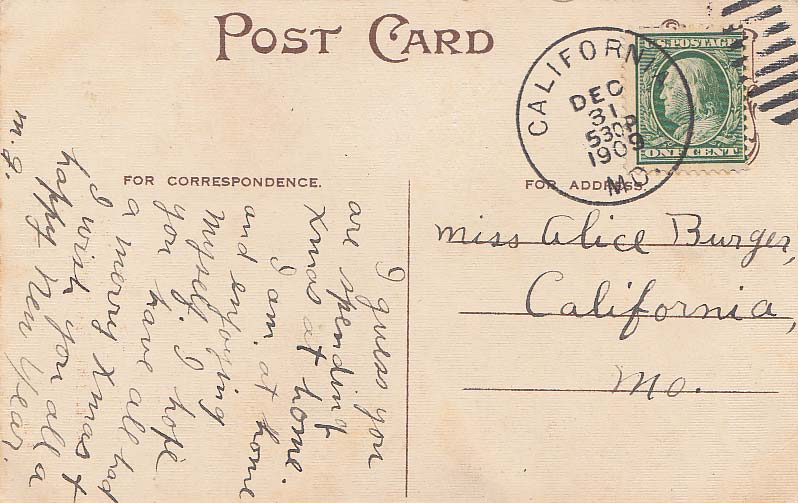 POST CARD
CALIFORNIA
DEC
31
530P
1909
MO.
U.S. POSTAGE
ONE CENT
FOR CORRESPONDENCE.
FOR ADDRESS.
I guess you
are spending
Xmas at home.
I am. at home
and enjoying
myself. I hope
you have all had
a merry Xmas &
I wish you all a
happy New Year.
M. G.
Miss Alice Burger,
California,
Mo.